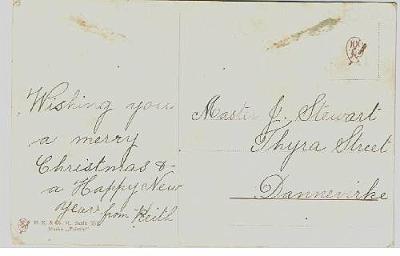 Wishing you
a merry
Christmas &
a Happy New
Year from Keith
Master J. Stewart
Thyra Street
Danneverke